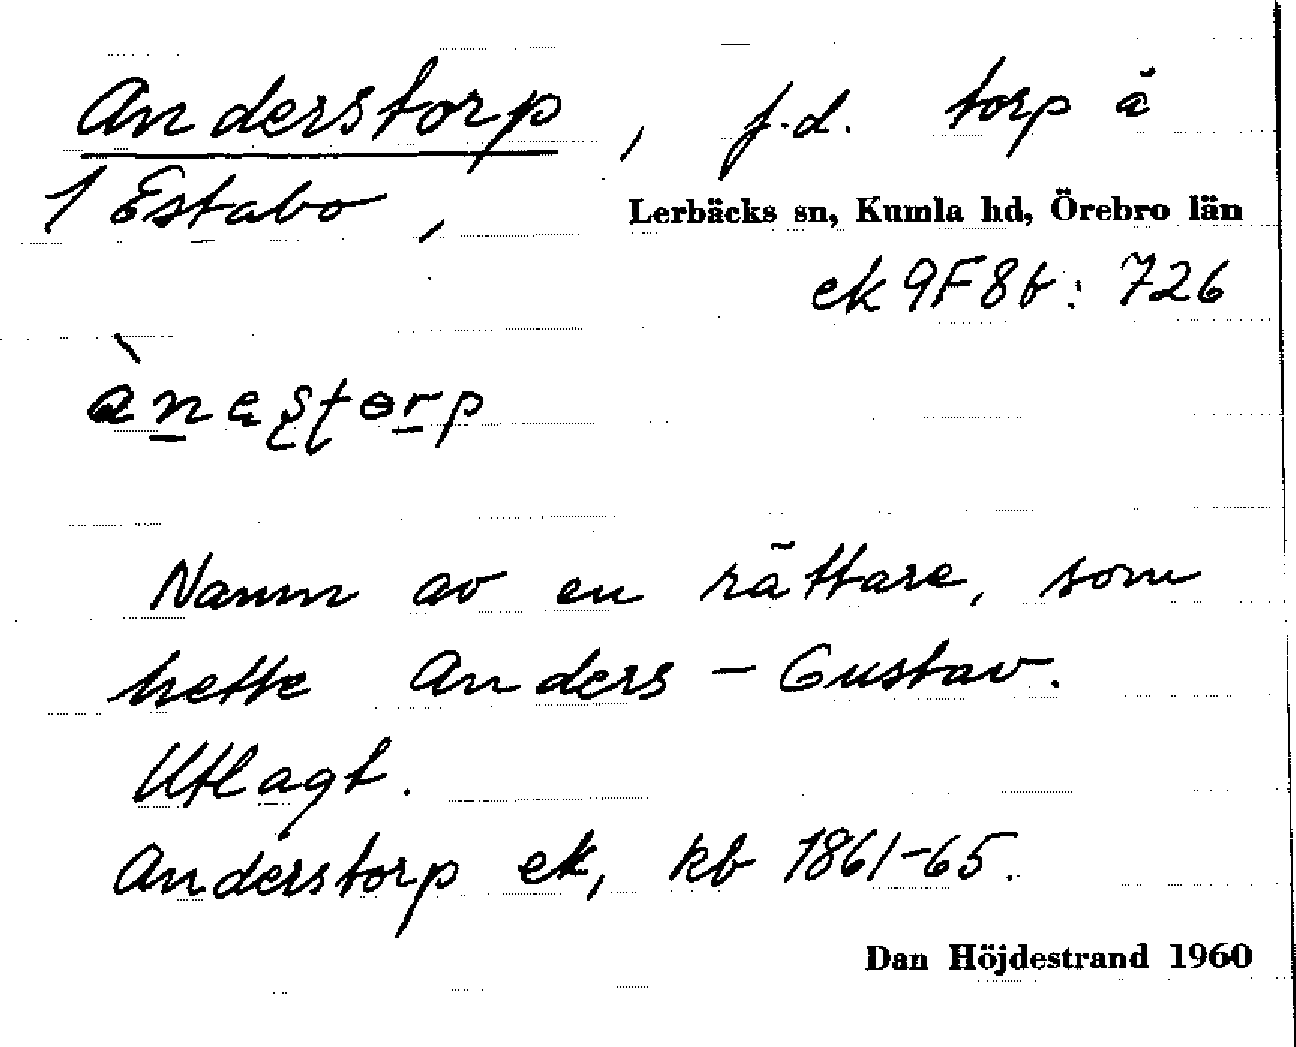 Anderstorp, f.d. torp å
1 Estabo, Lerbäcks sn, Kumla hd, Örebro län
ek 9F8b: 726
Namn av en rättare, som
hette Anders-Gustav.
Utlagt.
Anderstorp ek, kb 1861-65.
Dan Höjdestrand 1960